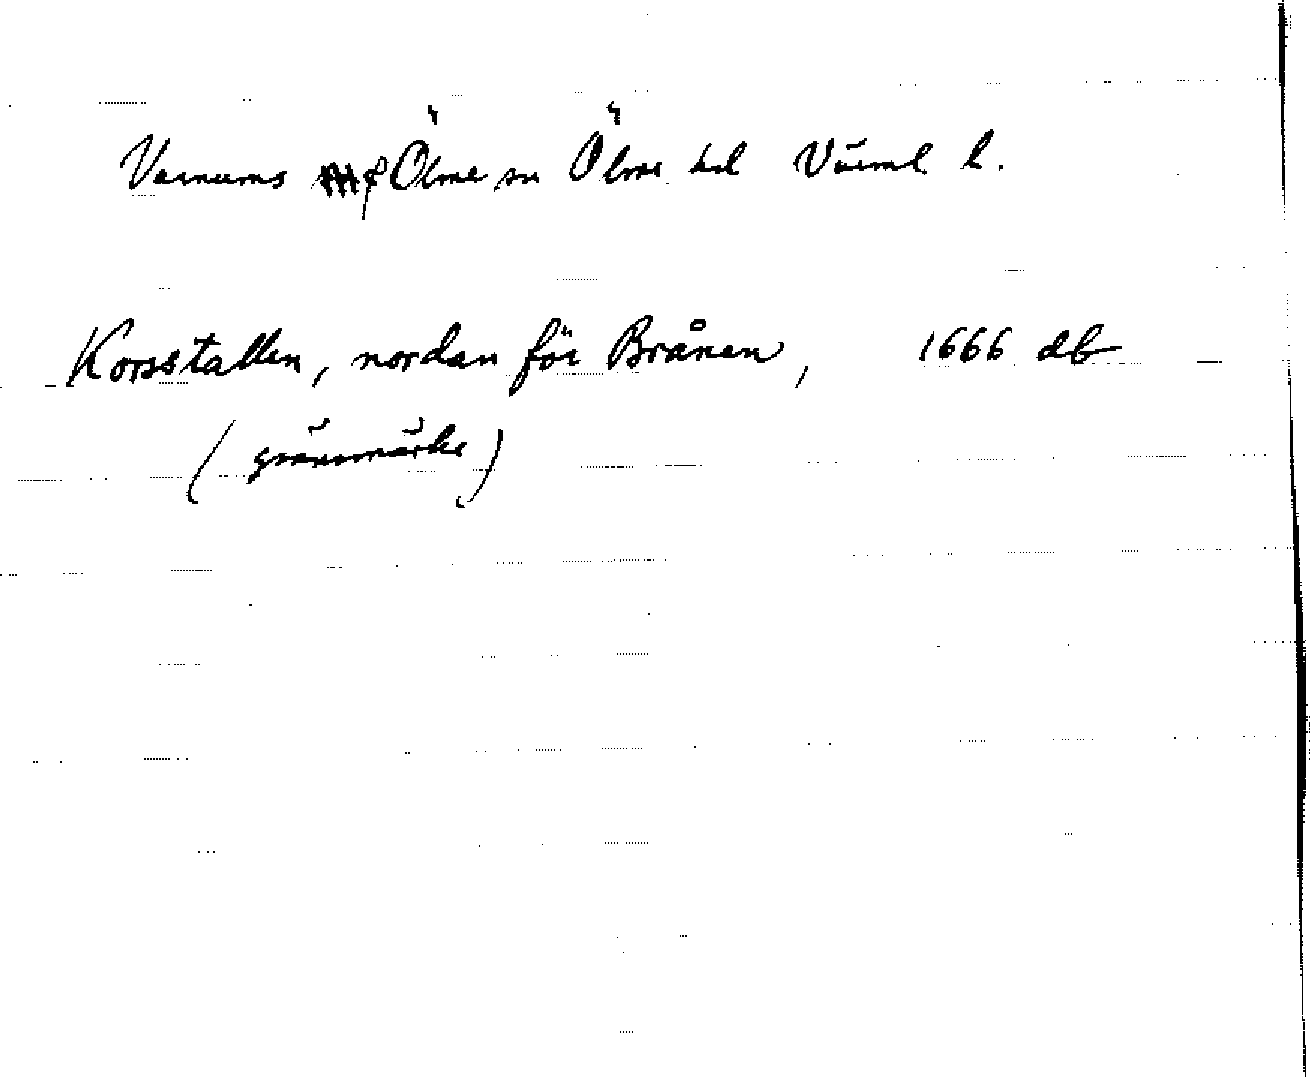 Varnums f Ölme sn Ölme hd Värml l.
Korsstallen, nordan för Brånen, 1666 db
(gränsmärke)